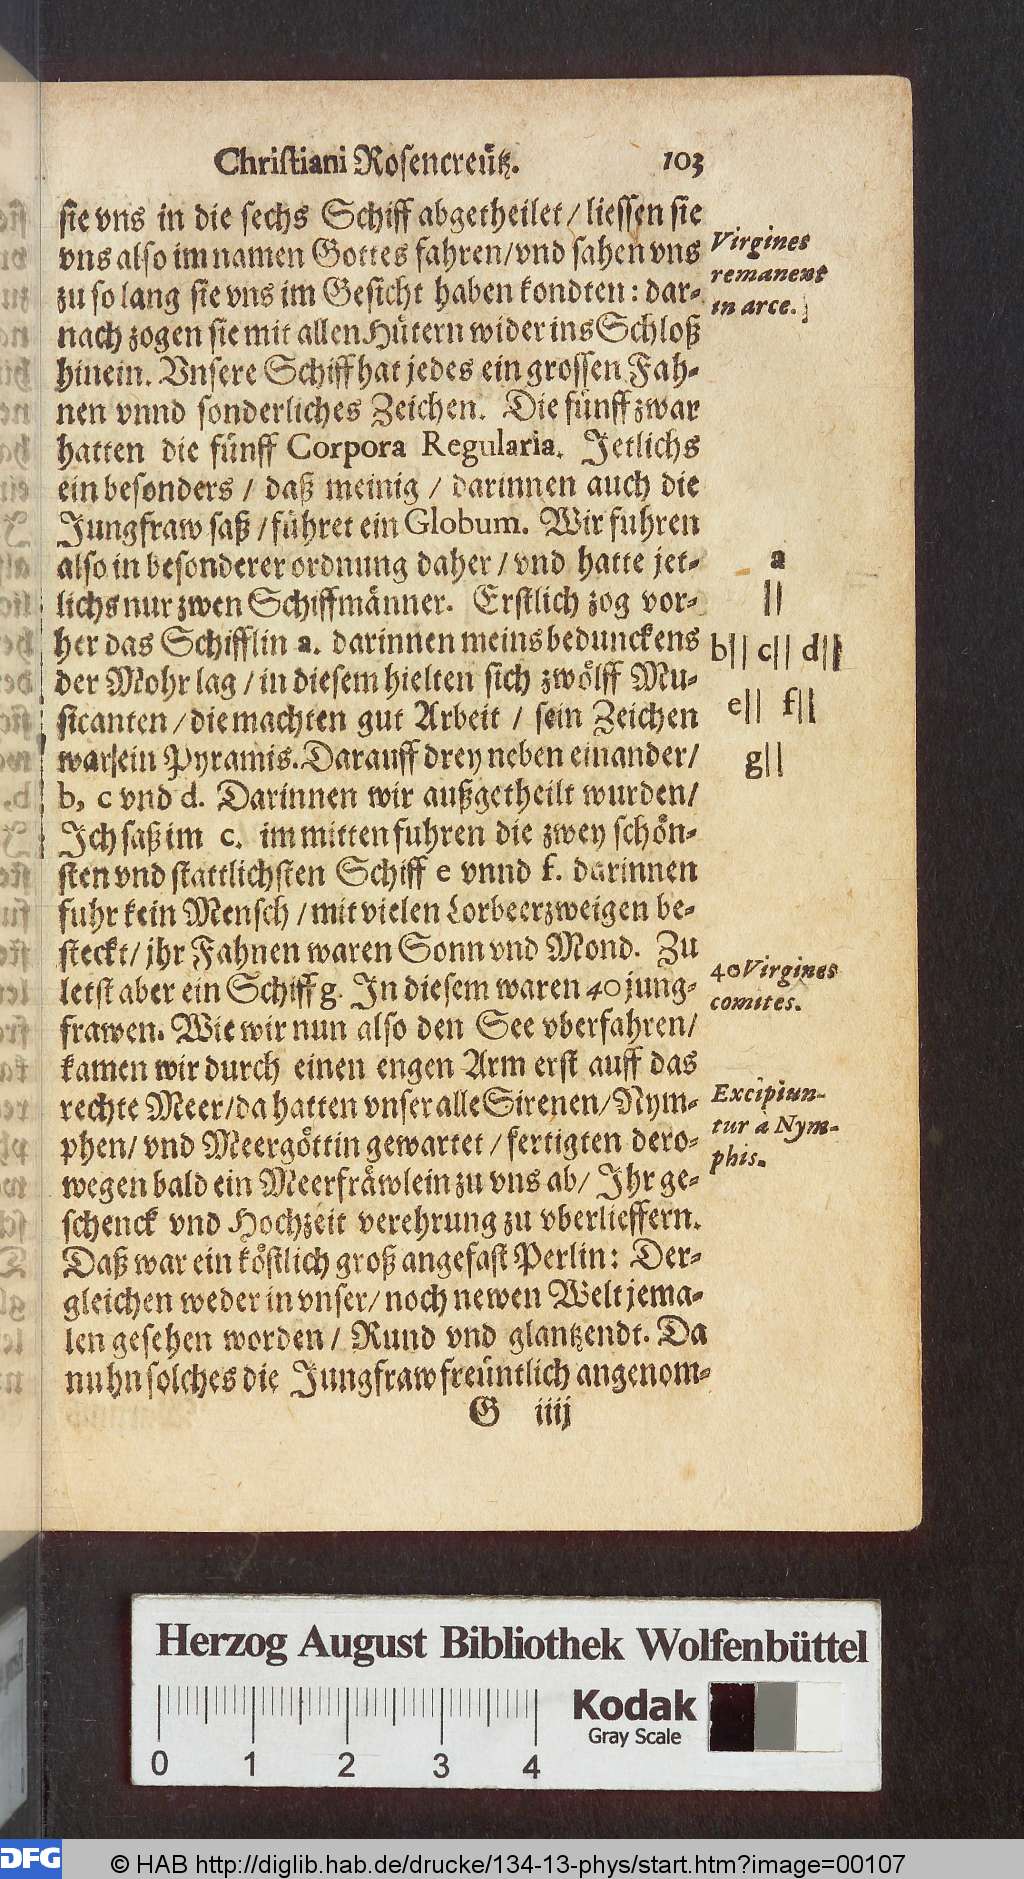 Christiani Rosencreütz. 103
sie vns in die sechs Schiff abgetheilet / liessen sie
vns also im namen Gottes fahren/vnd sahen vns
zu so lang sie vns im Gesicht haben kondten: dar-
nach zogen sie mit allen Hütern wider ins Schloß
hinein. Vnsere Schiff hat jedes ein grossen Fah-
nen vnnd sonderliches Zeichen. Die fünff zwar
hatten die fünff Corpora Regularia. Jetlichs
ein besonders / daß meinig / darinnen auch die
Jungfraw saß / führet ein Globum. Wir fuhren
also in besonderer ordnung daher / vnd hatte jet-
lichs nur zwen Schiffmänner. Erstlich zog vor-
her das Schifflin a. darinnen meins bedunckens
der Mohr lag / in diesem hielten sich zwölff Mu-
sicanten / die machten gut Arbeit / sein Zeichen
war ein Pyramis. Darauff drey neben einander/
b, c vnd d. Darinnen wir außgetheilt wurden/
Ich saß im c. im mitten fuhren die zwey schön-
sten vnd stattlichsten Schiff e vnnd f. darinnen
fuhr kein Mensch / mit vielen Lorbeerzweigen be-
steckt/ jhr Fahnen waren Sonn vnd Mond. Zu
letst aber ein Schiff g. In diesem waren 40 jung-
frawen. Wie wir nun also den See vberfahren/
kamen wir durch einen engen Arm erst auff das
rechte Meer/da hatten vnser alle Sirenen/Nym-
phen/ vnd Meergöttin gewartet / fertigten dero-
wegen bald ein Meerfräwlein zu vns ab/ Ihr ge-
schenck vnd Hochzeit verehrung zu vberlieffern.
Daß war ein köstlich groß angefast Perlin: Der-
gleichen weder in vnser/ noch newen Welt jema-
len gesehen worden / Rund vnd glantzendt. Da
nuhn solches die Jungfraw freüntlich angenom-
G iiij
Virgines
remanent
in arce.
a
||
b|| c|| d||
e|| f||
g||
40 Virgines
comites.
Excipiun-
tur a Nym-
phis.
Herzog August Bibliothek Wolfenbüttel
Kodak
Gray Scale
0 1 2 3 4
DFG
© HAB http://diglib.hab.de/drucke/134-13-phys/start.htm?image=00107